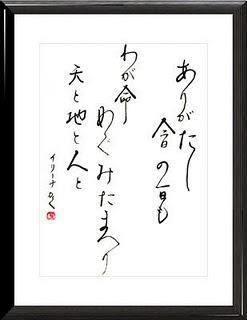 ありがたし
今日の一日も
わが命
めぐみたまへり
天と地と人と
イリーナ